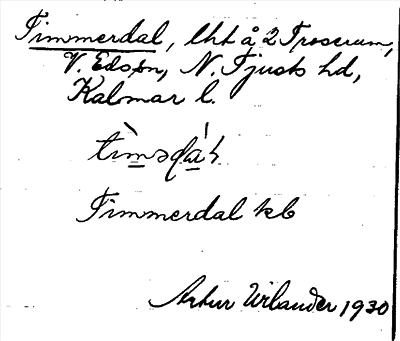 Timmerdal, lht å 2 Troserum,
V. Eds sn, N. Tjusts hd,
Kalmar l.
Timmerdal kb
Artur Wirlander 1930